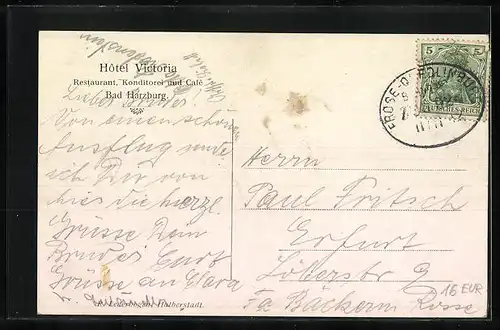 Hôtel Victoria
Restaurant, Konditorei und Café
Bad Harzburg.
Lieber Bruder
Von einen schön
Ausflug sende
ich Dir von
hier die herzl.
Grüsse Dein
Bruder Curt
Grüsse an Clara
Halberstadt.
Herrn
Paul Fritsch
Erfurt
Löberstr 9
Fa Bäckerm. Rosse
5 5
DEUTSCHES REICH
FROSE-QUEDLINBURG
16 EUR